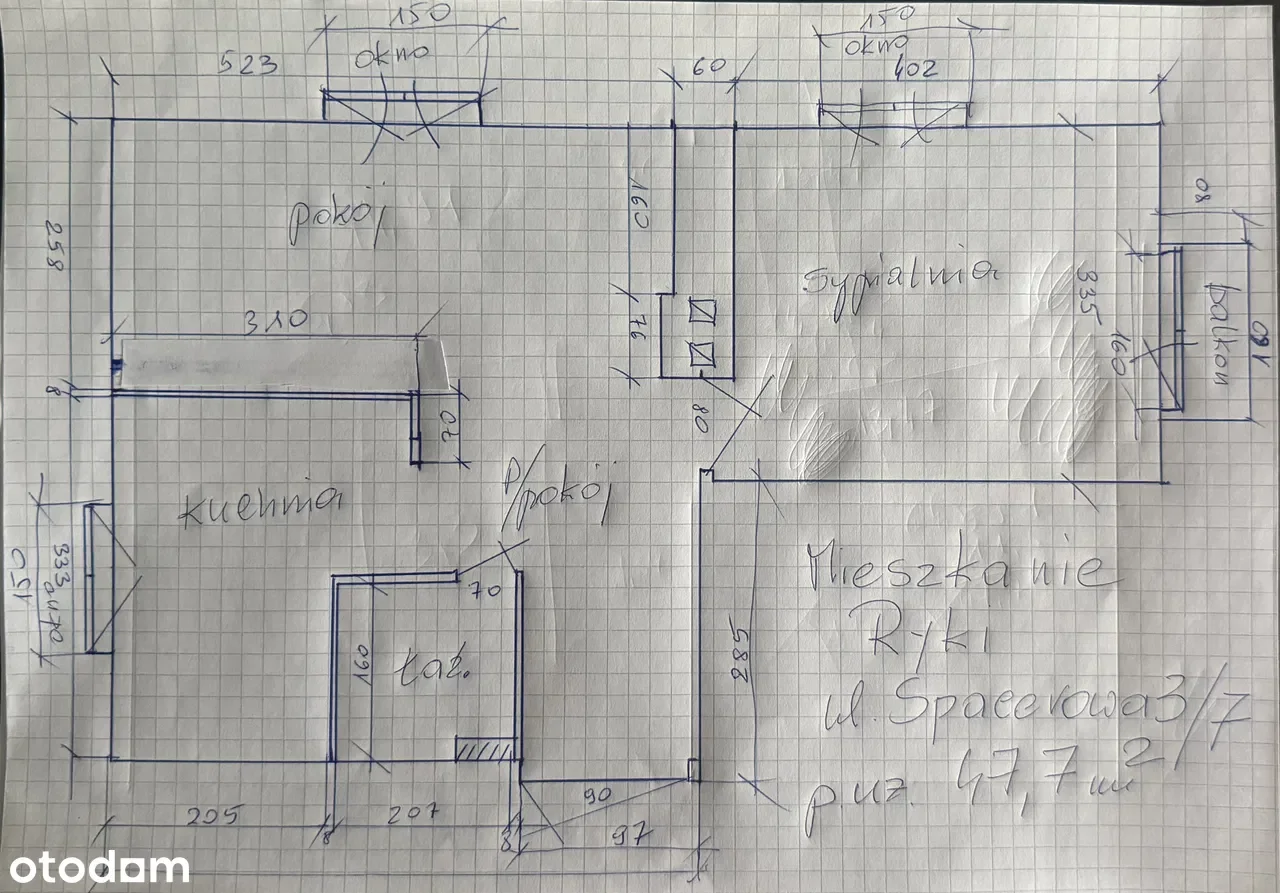 150
150
okno
okno
523
60
402
80
160
pokój
258
sypialnia
335
balkon
76
310
160
160
8
70
80
kuchnia
p/pokój
150
333
okno
70
Mieszkanie
Ryki
ul. Spacerowa 3/7
p.uż. 47,7 m2
160
Łaź.
588
205
8
207
8
90
97
otodom